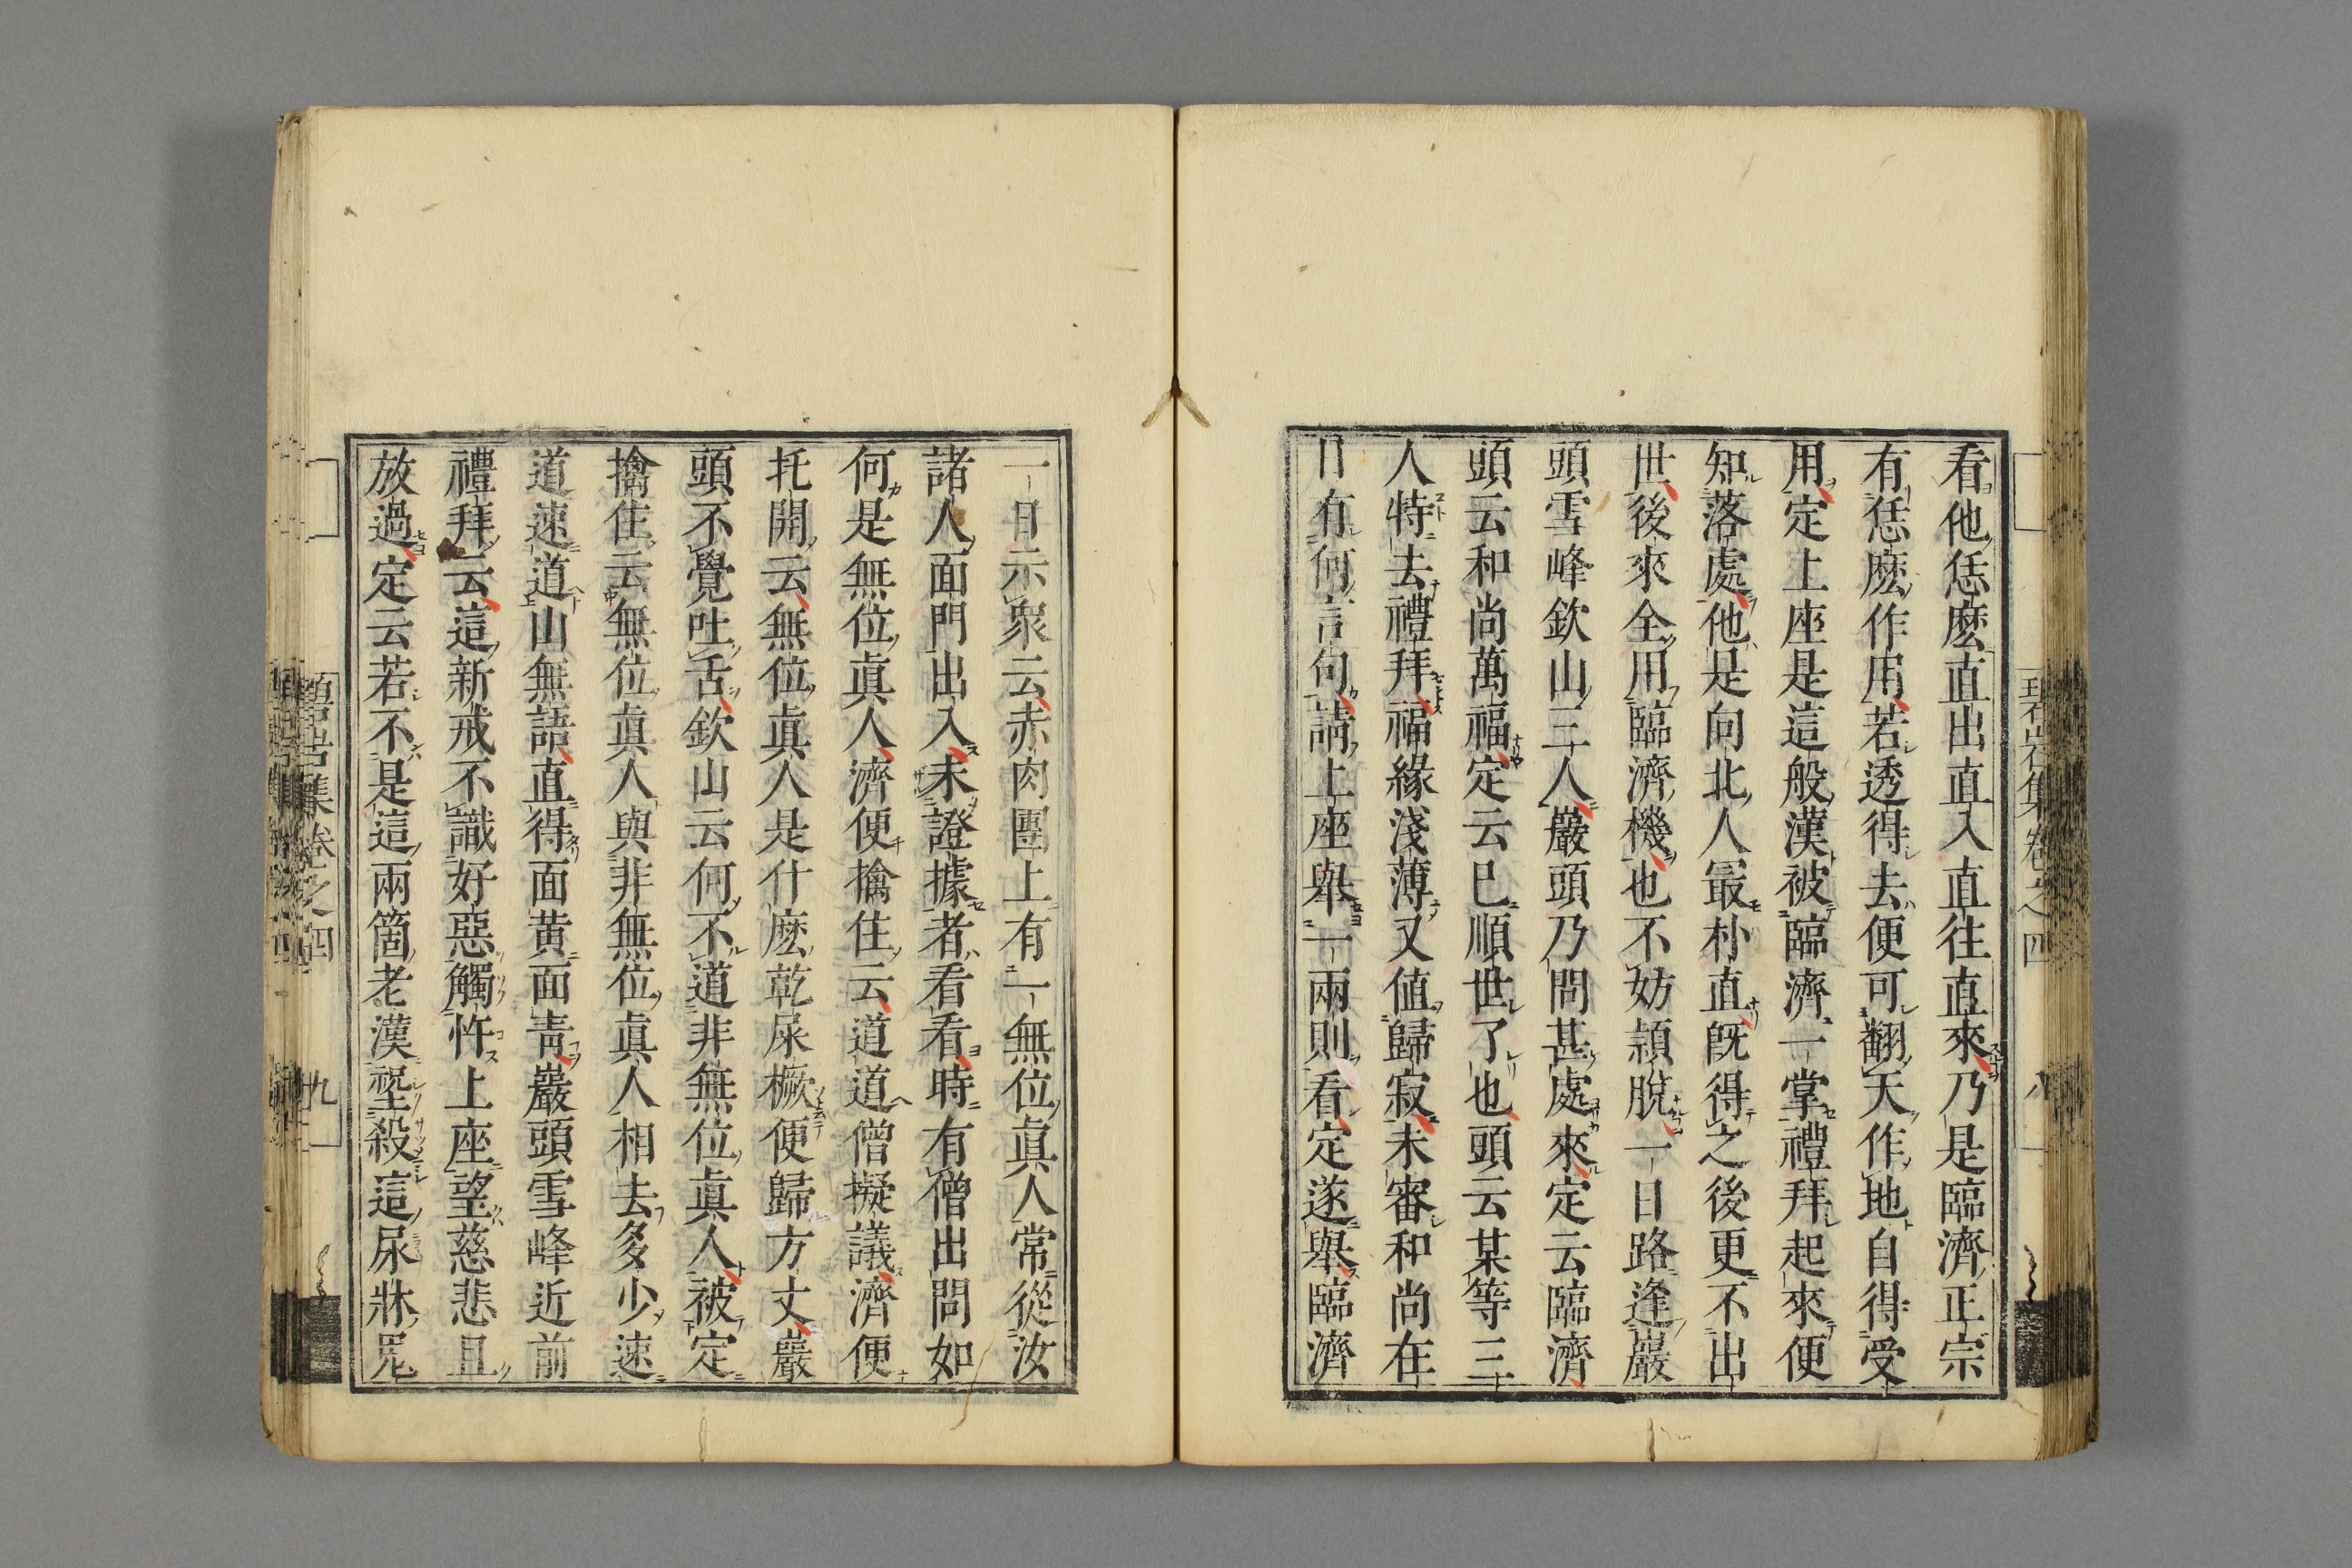 看他恁麽直出直入直往直來乃是臨濟正宗
有恁麽作用若透得去便可翻天作地自得受
用定上座是這般漢被臨濟一掌禮拜起來便
知落處他是向北人最朴直旣得之後更不出
世後來全用臨濟機也不妨頴脫一日路逢巖
頭雪峰欽山三人巖頭乃問甚處來定云臨濟
頭云和尚萬福定云已順世了也頭云某等三
人特去禮拜福緣淺薄又値歸寂未審和尚在
日有何言句請上座舉一兩則看定遂舉臨濟
一日示衆云赤肉團上有一無位眞人常從汝
諸人面門出入未證據者看看時有僧出問如
何是無位眞人濟便擒住云道道僧擬議濟便
托開云無位眞人是什麽乾屎橛便歸方丈巖
頭不覺吐舌欽山云何不道非無位眞人被定
擒住云無位眞人與非無位眞人相去多少速
道速道山無語直得面黄面靑巖頭雪峰近前
禮拜云這新戒不識好惡觸忤上座望慈悲且
放過定云若不是這兩箇老漢㘅殺這尿牀鬼
碧岩集卷之四
八
碧岩集卷之四
九